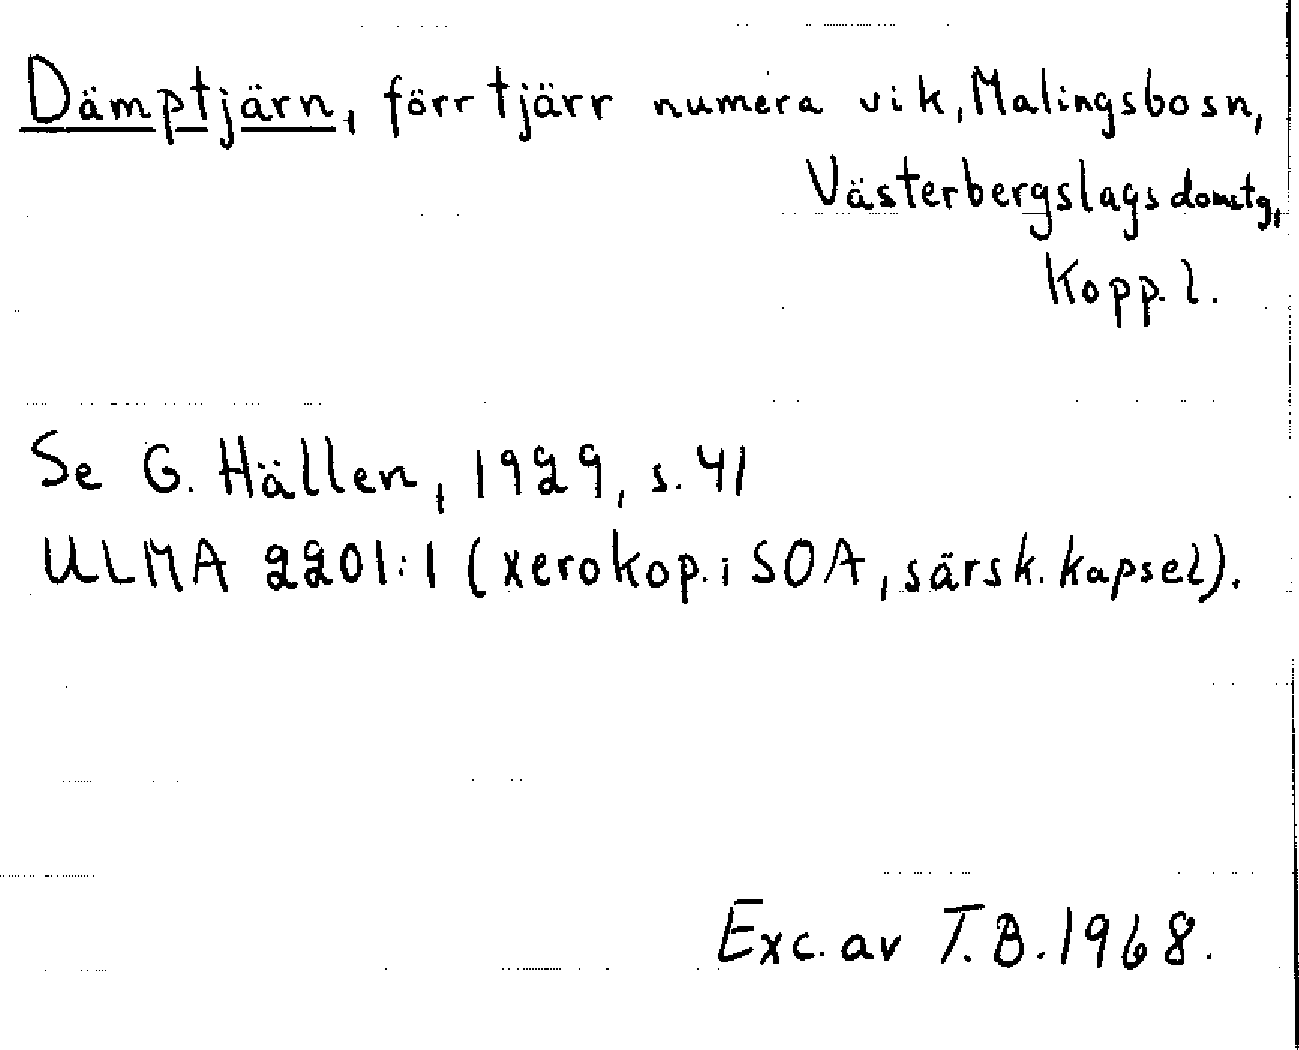 Dämptjärn, förr tjärr numera vik, Malingsbosn,
Västerbergslags domstg,
Kopp. l.
Se G. Hällen, 1929, s. 41
ULMA 2201:1 (xerokop. i SOA, särsk. kapsel).
Exc. av T.B. 1968.